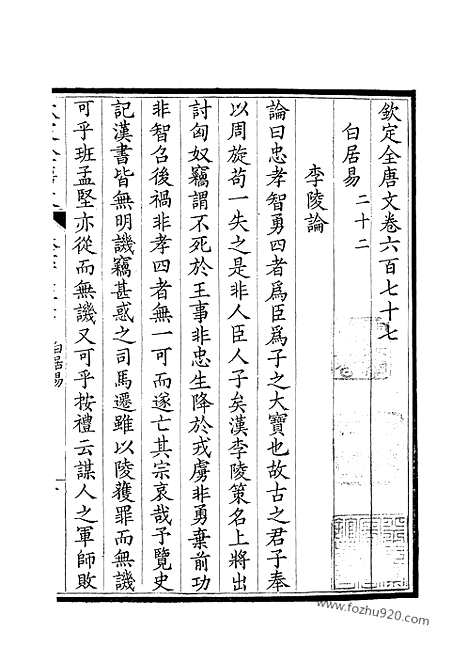 欽定全唐文卷六百七十七
白居易二十二
李陵論
論曰忠孝智勇四者爲臣爲子之大寶也故古之君子奉
以周旋苟一失之是非人臣人子矣漢李陵策名上將出
討匈奴竊謂不死於王事非忠生降於戎虜非勇棄前功
非智召後禍非孝四者無一可而遂亡其宗哀哉予覽史
記漢書皆無明譏竊甚惑之司馬遷雖以陵獲罪而無譏
可乎班孟堅亦從而無譏又可乎按禮云謀人之軍師敗
白居易
www.fozhu920.com